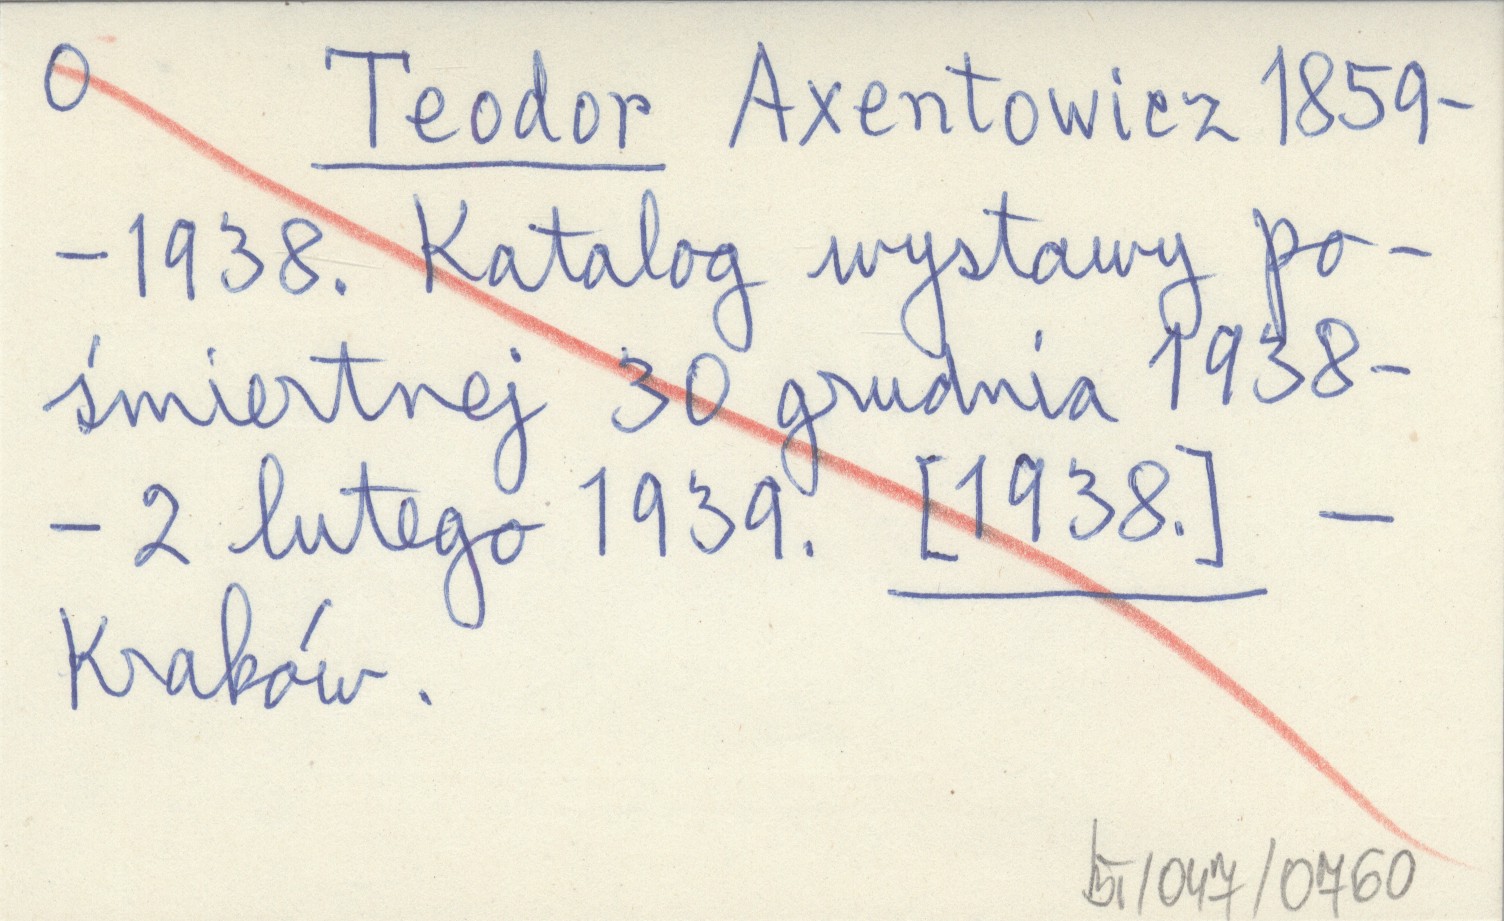 0 Teodor Axentowicz 1859-
-1938. Katalog wystawy po-
śmiertnej 30 grudnia 1938-
- 2 lutego 1939. [1938.] —
Kraków.
/047/0760